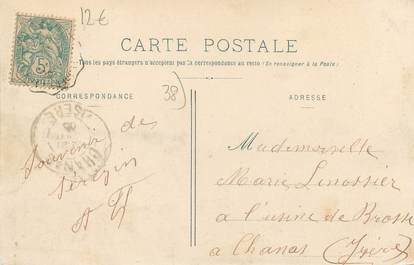 12€
CARTE POSTALE
Tous les pays étrangers n'acceptent pas la correspondance au recto (Se renseigner à la Poste)
38)
CORRESPONDANCE
ADRESSE
5c
CHANAS
ISÈRE
Souvenir de
Serezin
Mademoiselle
Marie Linossier
à l'usine de Brosse
à Chanas (Isère)